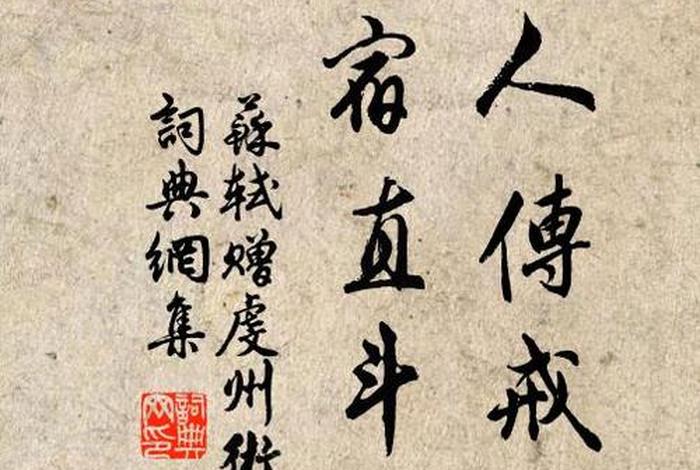 人傳戒
宿直斗
蘇軾贈虔州術
詞典網集
詞典网印